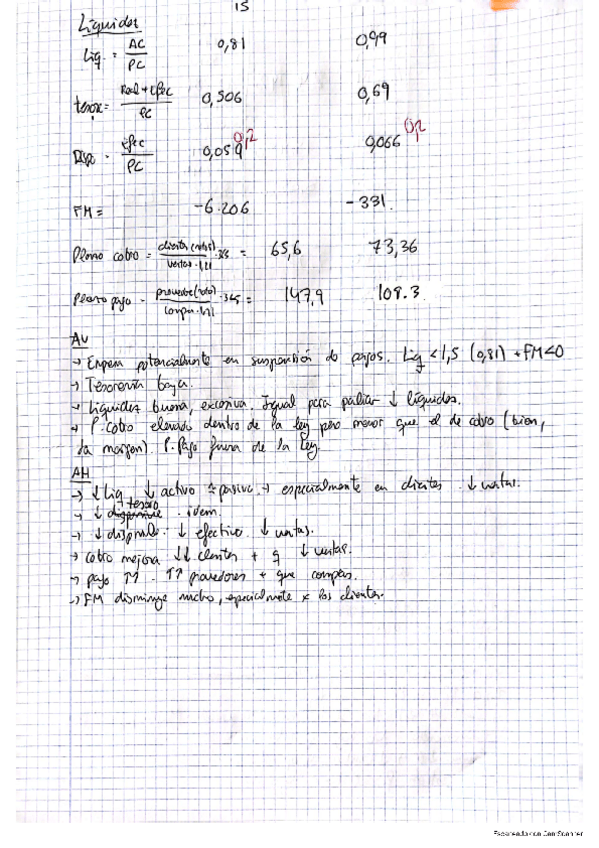 15
Liquidez
Liq. = AC / PC 0,81 0,99
tesor = Real + Efec / PC 0,506 0,69
Disp = Efec / PC 0,059 0,2 0,066 0,2
FM = -6.206 -331.
Plazo cobro = clientes (netos) / ventas · 1,21 · 365 = 65,6 73,36
Plazo pago = proveedores (neto) / compras · 1,21 · 365 = 147,9 108.3
AV
→ Empresa potencialmente en suspensión de pagos. Liq < 1,5 (0,81) + FM<0
→ Tesorería baja.
→ Liquidez buena, excesiva. Igual para paliar ↓ liquidez.
→ P. cobro elevado dentro de la ley pero menor que el de cobro (bien,
da margen). P. Pago fuera de la ley.
AH
→ ↓ Liq ↓ activo pasivo → especialmente en clientes ↓ ventas.
→ ↓ disponible tesoro . idem.
→ ↓ disponible . ↓ efectivo ↓ ventas.
→ cobro mejora ↓↓ clientes + q ↓ ventas.
→ pago ↑↑ . ↑↑ proveedores + que compras.
→ FM disminuye mucho, especialmente x los clientes.
Escaneado con CamScanner